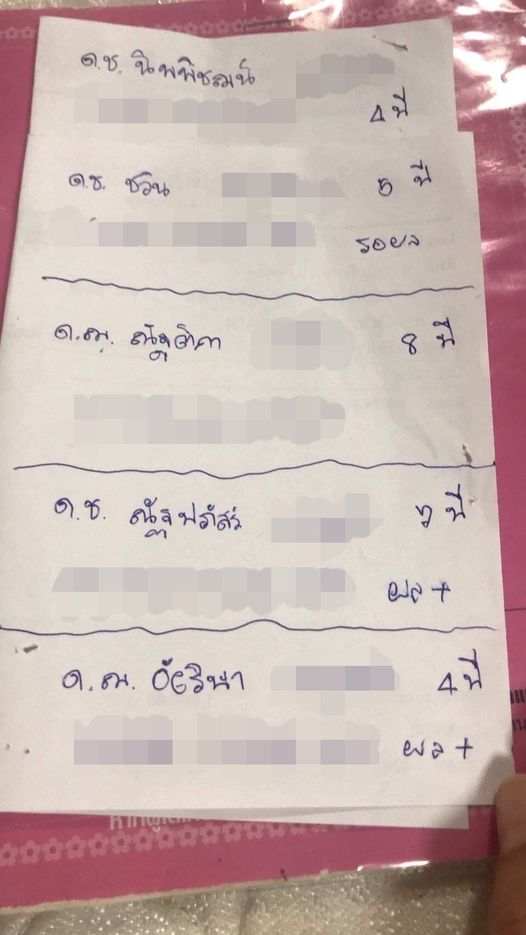 ด.ช. นิพพิชฌน์
4 ปี
ด.ช. ชวิน 5 ปี
รอผล
ด.ญ. ณัฐธิดา 8 ปี
ด.ช. ณัฐปภัสร์ 7 ปี
ผล +
ด.ญ. อัยวิษา 4 ปี
ผล +